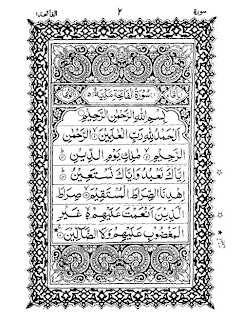 سورة ٢ الفاتحة ١
سُورَةُ الْفَاتِحَةِ مَكِّيَّةٌ
بِسْمِ اللهِ الرَّحْمٰنِ الرَّحِيْمِ
اَلْحَمْدُ لِلّٰهِ رَبِّ الْعٰلَمِيْنَ ۙ الرَّحْمٰنِ
الرَّحِيْمِ ۙ مٰلِكِ يَوْمِ الدِّيْنِ ؕ
اِيَّاكَ نَعْبُدُ وَاِيَّاكَ نَسْتَعِيْنُ ؕ
اِهْدِنَا الصِّرَاطَ الْمُسْتَقِيْمَ ۙ صِرَاطَ
الَّذِيْنَ اَنْعَمْتَ عَلَيْهِمْ ۙ غَيْرِ
الْمَغْضُوْبِ عَلَيْهِمْ وَلَا الضَّآلِّيْنَ